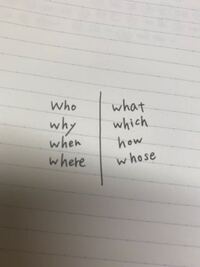 who what
why which
when how
where whose